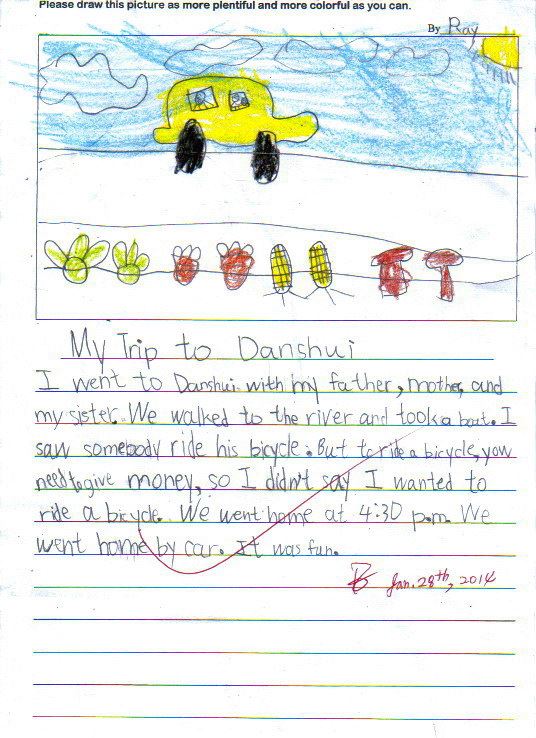 Please draw this picture as more plentiful and more colorful as you can.
By Ray
My Trip to Danshui
I went to Danshui with my father, mother, and
my sister. We walked to the river and took a boat. I
saw somebody ride his bicycle. But to ride a bicycle, you
need to give money, so I didn't say I wanted to
ride a bicycle. We went home at 4:30 p.m. We
went home by car. It was fun.
Jan. 28th, 2014